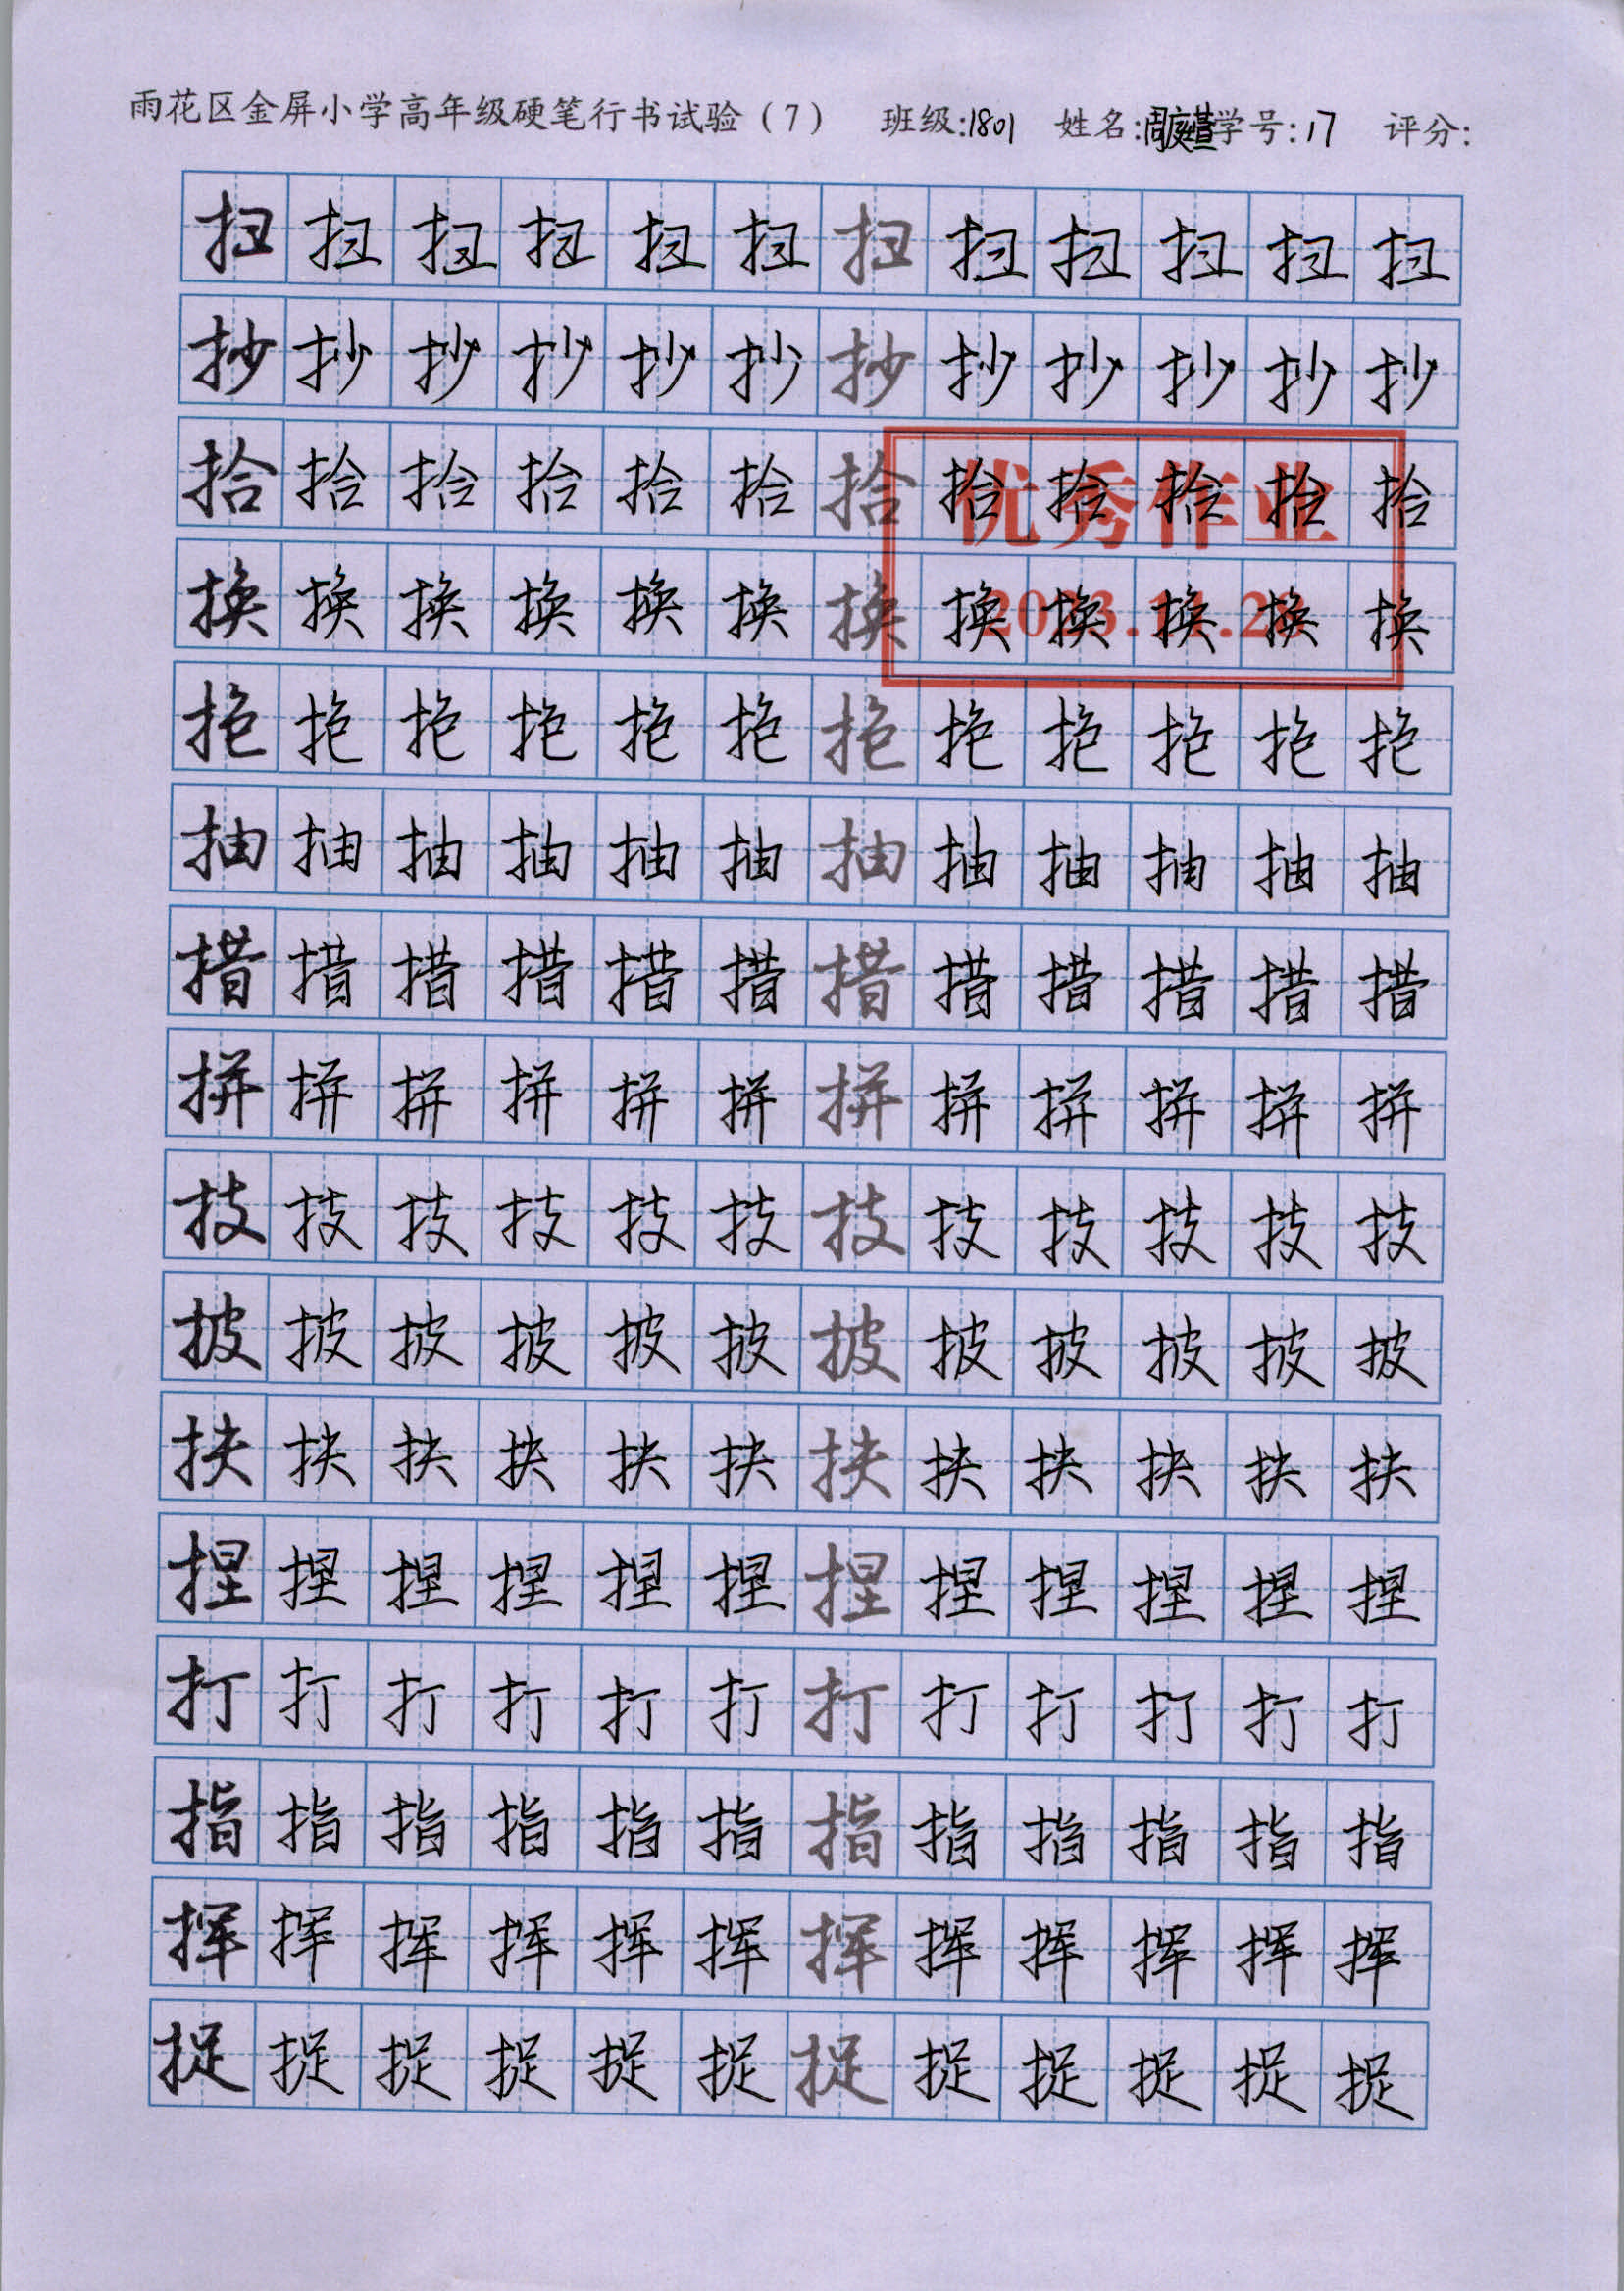 雨花区金屏小学高年级硬笔行书试验（7） 班级:1801 姓名:周庭萱 学号:17 评分:
扫扫扫扫扫扫扫扫扫扫扫扫
抄抄抄抄抄抄抄抄抄抄抄抄
拾拾拾拾拾拾拾拾拾拾拾拾
优秀作业
换换换换换换换换换换换换
抱抱抱抱抱抱抱抱抱抱抱抱
抽抽抽抽抽抽抽抽抽抽抽抽
措措措措措措措措措措措措
拼拼拼拼拼拼拼拼拼拼拼拼
技技技技技技技技技技技技
披披披披披披披披披披披披
扶扶扶扶扶扶扶扶扶扶扶扶
捏捏捏捏捏捏捏捏捏捏捏捏
打打打打打打打打打打打打
指指指指指指指指指指指指
挥挥挥挥挥挥挥挥挥挥挥挥
捉捉捉捉捉捉捉捉捉捉捉捉